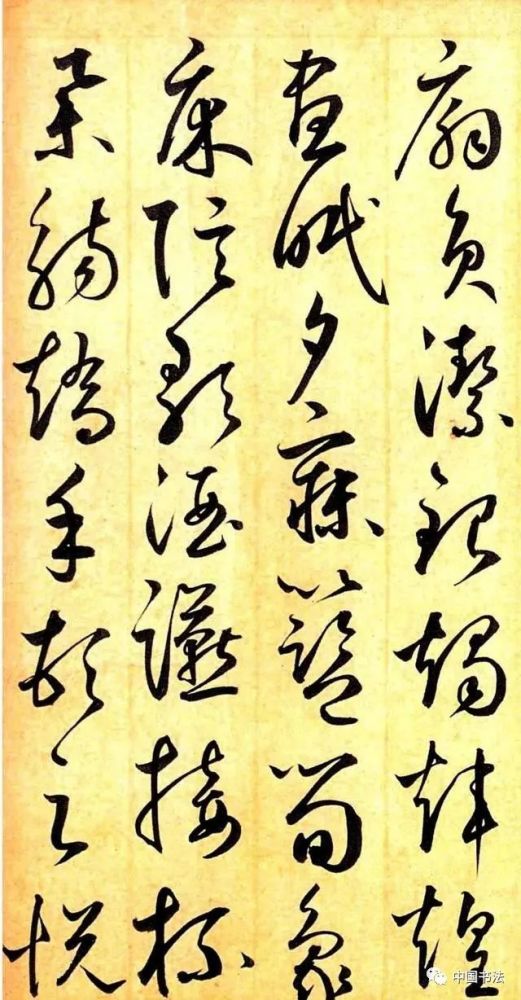 扇員潔銀燭煒煌
晝眠夕寐籃筍象
床弦歌酒讌接杯
舉觴矯手頓足悅
中国书法